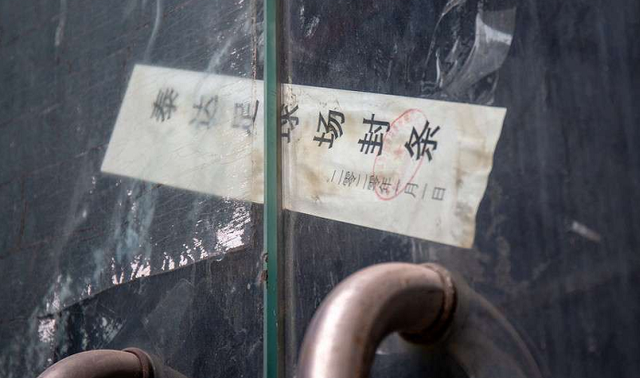 泰达足球场封条
二零二零年一月一日